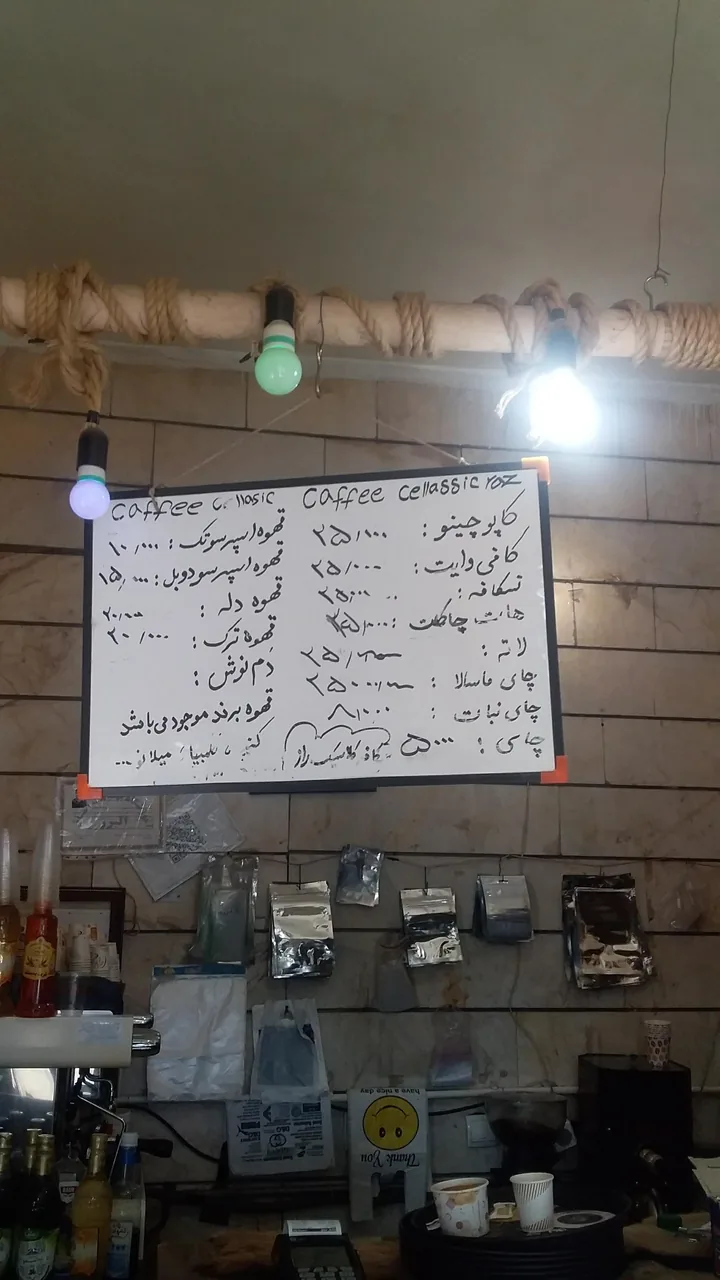 Caffee cellassic raz
کاپوچینو : ۲۵/۰۰۰
کافی وایت : ۲۵/۰۰۰
نسکافه :
هات چاکلت :
لاته : ۲۵/۰۰۰
چای ماسالا :
چای نبات : ۸/۰۰۰
چای : ۵۰۰۰
Caffee
قهوه اسپرسو تک : ۱۰/۰۰۰
قهوه اسپرسو دوبل : ۱۵/۰۰۰
قهوه دله :
قهوه ترک : ۲۰/۰۰۰
دم نوش :
قهوه برند موجود می باشد
میلانو ...
راز
have a nice day
Thank You